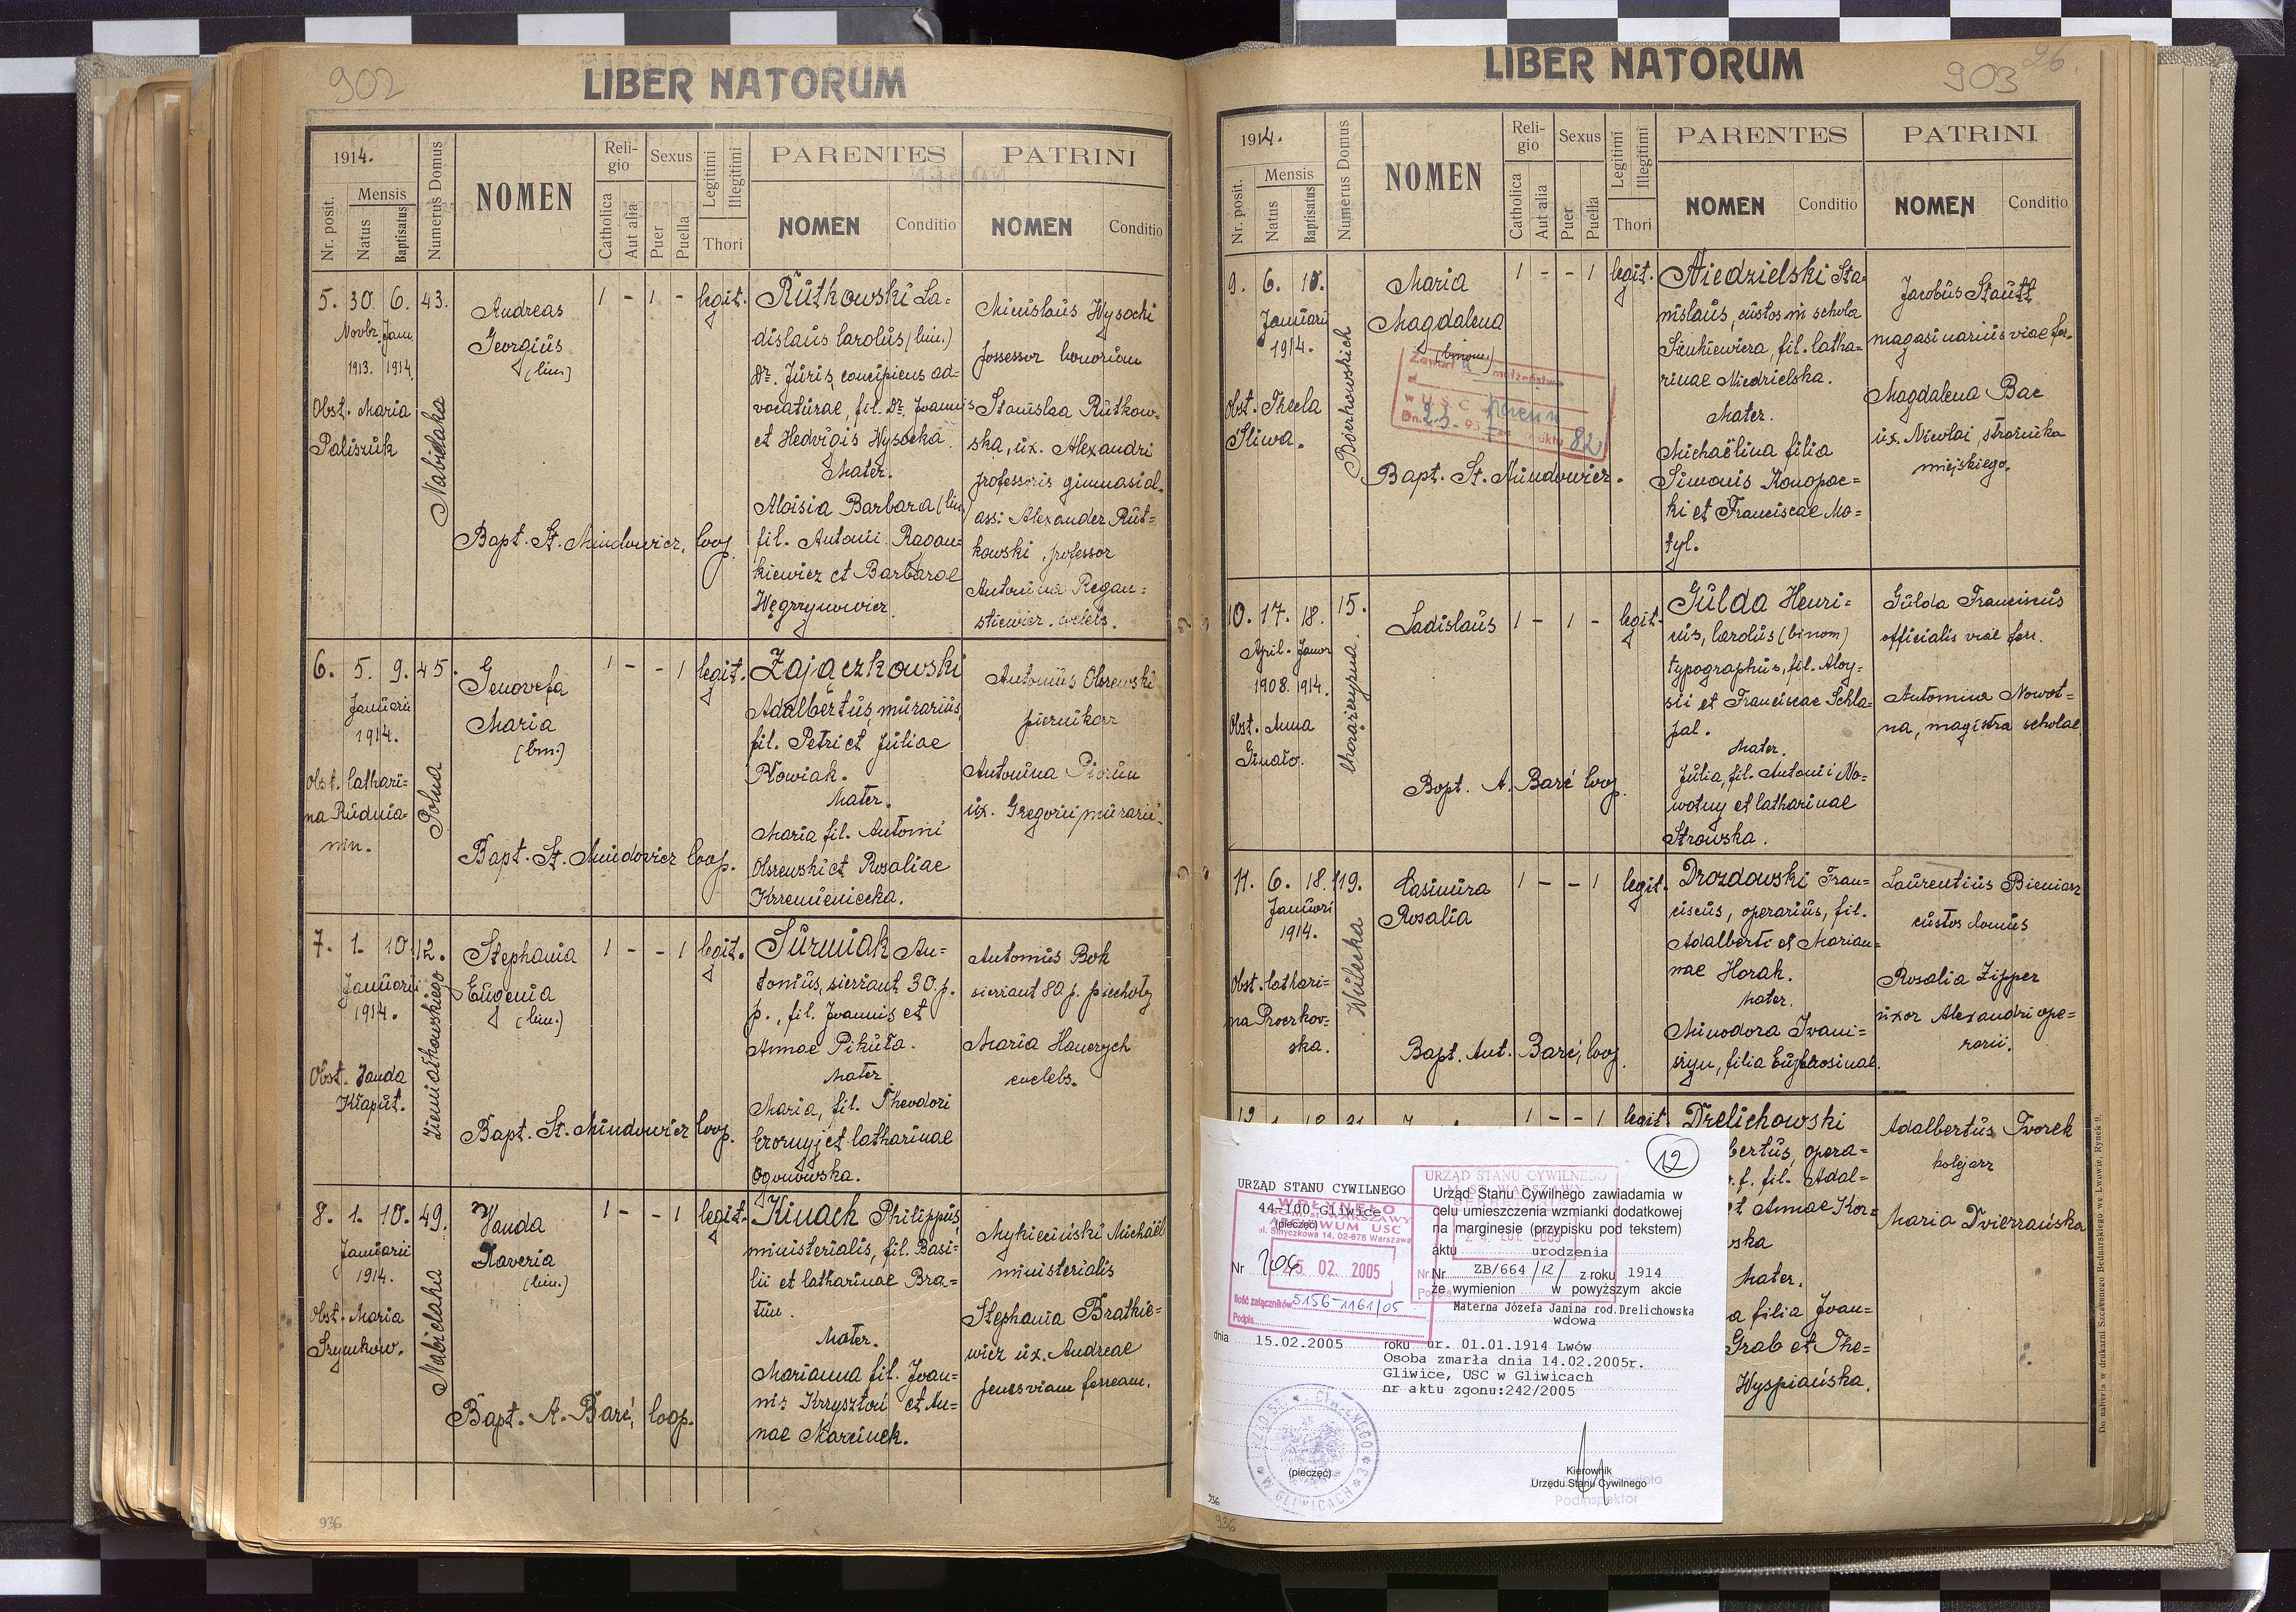 902
LIBER NATORUM
1914.
Nr. posit.
Mensis
Natus
Baptisatus
Numerus Domus
NOMEN
Religio
Catholica
Aut alia
Sexus
Puer
Puella
Legitimi
Illegitimi
Thori
PARENTES
NOMEN
Conditio
PATRINI
NOMEN
Conditio
5. 30. 6. 43.
Novbr. Jan.
1913. 1914.
Obst. Maria
Paliszuk
Nabielaka
Andreas
Georgius
(bin.)
1 - 1 - legit.
Bapt. St. Mindowicz, Coop.
Rutkowski La=
dislaus Carolus (bin.)
Dr. Juris, concipiens ad=
vocaturae, fil. Dr. Joannis
et Hedvigis Wysocka.
Mater.
Aloisia Barbara (bin.)
fil. Antoni Ragan=
kiewicz et Barbarae
Węgrzynowicz.
Micislaus Wysocki
possessor bonorum
Stanislaa Rutkow=
ska, ux. Alexandri
professoris gimnasial.
ass: Alexander Rut=
kowski, professor
Antonina Regan=
stiewicz. celebs.
6. 5. 9. 45.
Januarii
1914.
Obst. Cathari=
na Rudnia=
nin.
Polna
Genovefa
Maria
(bin.)
1 - - 1 legit.
Bapt. St. Mindowicz Coop.
Zajączkowski
Adalbertus, murarius,
fil. Petri et Juliae
Płowiak.
Mater.
Maria fil. Antoni
Olszewski et Rosaliae
Krzemieniecka.
Antonius Olszewski
piernikarz
Antonina Piorun
ux. Gregorii murarii.
7. 1. 10. 12.
Januarii
1914.
Obst. Vanda
Kłaput.
Ziemiałkowskiego
Stephania
Eugenia
(bin.)
1 - - 1 legit.
Bapt. St. Mindowicz Coop.
Surmiak An=
tonius, sierzant 30 p.
p., fil. Joannis et
Annae Pikuta.
Mater
Maria, fil. Theodori
Czornyj et Catharinae
Ogonowska.
Antonius Bok
sierzant 80 p. piechoty
Maria Hawrych
caelebs.
8. 1. 10. 49.
Januarii
1914.
Obst. Maria
Szymków.
Nabielaka
Vanda
Xaveria
(bin.)
1 - - 1 legit.
Bapt. A. Barć, Coop.
Kinach Philippus,
ministerialis, fil. Basi=
lii et Catharinae Bra=
tuń.
Mater.
Marianna fil. Joan=
nis Krzysztoń et An=
nae Marcinek.
Mykieciński Michaël
ministerialis
Stephania Bratkie=
wicz ux. Andreae
penes viam ferream.
936
903
96.
LIBER NATORUM
1914.
Nr. posit.
Mensis
Natus
Baptisatus
Numerus Domus
NOMEN
Religio
Catholica
Aut alia
Sexus
Puer
Puella
Legitimi
Illegitimi
Thori
PARENTES
NOMEN
Conditio
PATRINI
NOMEN
Conditio
9. 6. 10.
Januarii
1914.
Obst. Thecla
Śliwa.
Maria
Magdalena
(binom.)
małżeństwo
w U.S.C.
82
1 - - 1 legit.
Bapt. St. Mindowicz.
Niedzielski Sta=
nislaus, custos in schola
Sienkiewicza, fil. Catha=
rinae Niedzielska.
Mater.
Michaëlina filia
Simonis Konopac=
ki et Franciscae Mo=
tyl.
Jacobus Stautt
magasinarius viae fer.
Magdalena Bac
ux. Nicolai strażnika
miejskiego.
10. 17. 18. 15.
April. Januar
1908. 1914.
Obst. Anna
Gnato.
Chorążczyzna.
Ladislaus
1 - 1 - legit.
Bapt. A. Barć Coop.
Gulda Henri=
cus, Carolus (binom)
typographus, fil. Aloy=
sii et Franciscae Schla=
pal.
Mater.
Julia, fil. Antoni No=
wotny et Catharinae
Strowska.
Gulda Franciscus
officialis viae ferr.
Antonina Nowot=
na, magistra scholae
11. 6. 18. 119.
Januarii
1914.
Obst. Cathari=
na Proczkow=
ska.
Wulecka
Casimira
Rosalia
1 - - 1 legit.
Bapt. Ant. Barć, Coop.
Drozdowski Fran=
ciscus, operarius, fil.
Adalberti et Marian=
nae Horak.
Mater.
Minodora Iwani=
szyn, filia Euphrosinae.
Laurentius Bieniarz
custos domus
Rosalia Zipper
uxor Alexandri ope=
rarii.
1 - - 1 legit.
Drelichowski
bertus, opera=
f. fil. Adal=
et Annae Kor=
ska
Mater.
a filia Joan=
Grab et The=
Wyspiańska.
Adalbertus Tworek
kolejarz
Maria Dwierzańska
Do nabycia w drukarni Szczęsnego Bednarskiego we Lwowie, Rynek 9.
12
URZĄD STANU CYWILNEGO
44-100 Gliwice
(pieczęć)
ARCHIWUM USC
ul. Smyczkowa 14, 02-678 Warszawa
WPŁYNĘŁO
Nr 706
25 02. 2005
Ilość załączników 5156-1161/05
Podpis
dnia 15.02.2005 roku
URZĄD STANU CYWILNEGO
Urząd Stanu Cywilnego zawiadamia w
celu umieszczenia wzmianki dodatkowej
na marginesie (przypisku pod tekstem)
aktu urodzenia
Nr ZB/664 /12/ z roku 1914
że wymienion w powyższym akcie
Materna Józefa Janina rod.Drelichowska
wdowa
ur. 01.01.1914 Lwów
Osoba zmarła dnia 14.02.2005r.
Gliwice, USC w Gliwicach
nr aktu zgonu:242/2005
(pieczęć)
Kierownik
Urzędu Stanu Cywilnego
Podinspektor
936
936